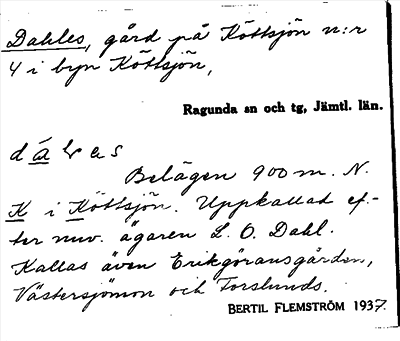 Dahles, gård på Köttsjön n:r
4 i byn Köttsjön,
Ragunda sn och tg, Jämtl. län.
Belägen 900 m. N.
K i Köttsjön. Uppkallad ef-
ter nuv. ägaren L. O. Dahl.
Kallas även Erikgöransgården,
Västersjömon och Torslunds.
BERTIL FLEMSTRÖM 1937.